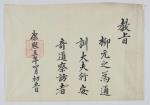 敎旨
柳元之爲通
訓大夫行安
奇道察訪者
康熙三年月初日